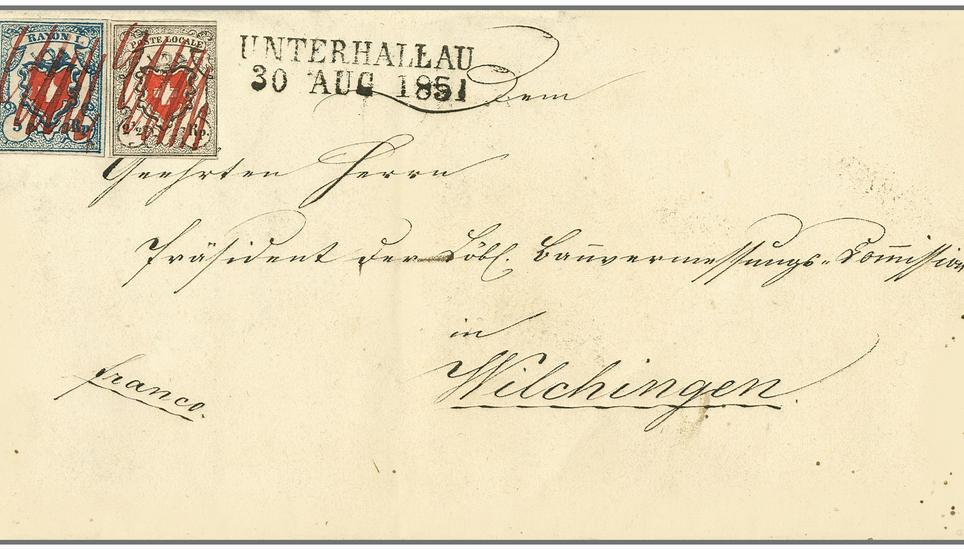 RAYON I.
5 Rp.
POSTE LOCALE
2½ Rp.
UNTERHALLAU
30 AUG 1851
Dem
Geehrten Herrn
Präsident der Löbl. Baůvermessungs-Com̄ission
in
Wilchingen.
franco.